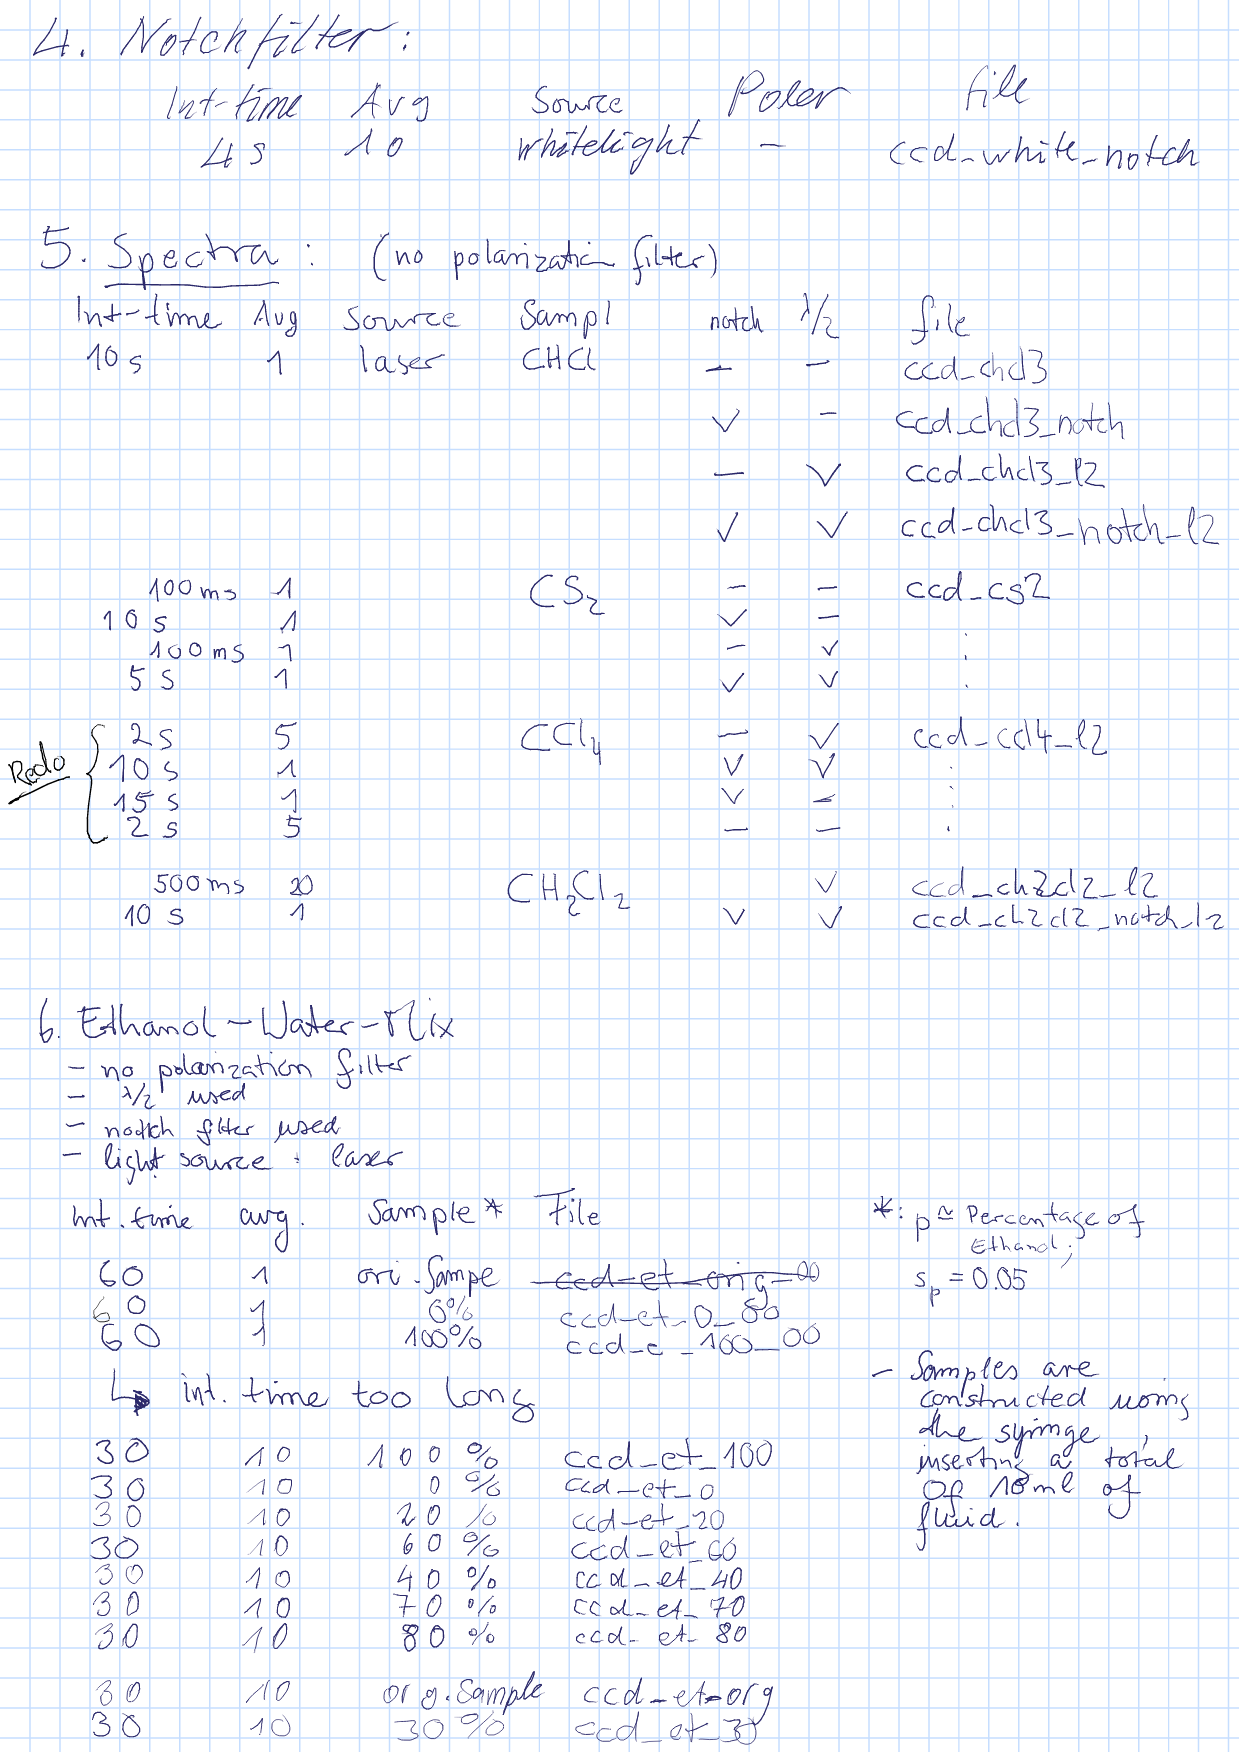 4. Notchfilter:
Int-time Avg Source Poler file
4 s 10 whitelight – ccd_white_notch
5. Spectra: (no polarization filter)
Int-time Avg Source Sampl notch λ/2 file
10 s 1 laser CHCl – – ccd_chcl3
✓ – ccd_chcl3_notch
– ✓ ccd_chcl3_l2
✓ ✓ ccd_chcl3_notch_l2
100 ms 1 CS₂ – – ccd_cs2
10 s 1 ✓ –
100 ms 1 – ✓ :
5 s 1 ✓ ✓ :
2 s 5 CCl₄ – ✓ ccd_ccl4_l2
Redo { 10 s 1 ✓ ✓ :
15 s 1 ✓ – :
2 s 5 – – .
500 ms 20 CH₂Cl₂ ✓ ccd_ch2cl2_l2
10 s 1 ✓ ✓ ccd_ch2cl2_notch_l2
6. Ethanol-Water-Mix
– no polarization filter
– λ/2 used
– notch filter used
– light source : laser
Int. time avg. Sample * File
60 1 ori. Sampe ccd-et-orig-00
60 1 0% ccd-et_0_00
60 1 100% ccd-e_100_00
↳ int. time too long
30 10 100 % ccd_et_100
30 10 0 % ccd_et_0
30 10 20 % ccd_et_20
30 10 60 % ccd_et_60
30 10 40 % ccd_et_40
30 10 70 % ccd_et_70
30 10 80 % ccd_et_80
30 10 org. Sample ccd_et_org
30 10 30 % ccd_et_30
*: p ≃ Percentage of
Ethanol;
s_p = 0.05
– Samples are
constructed using
the syringe,
inserting a total
of 10ml of
fluid.